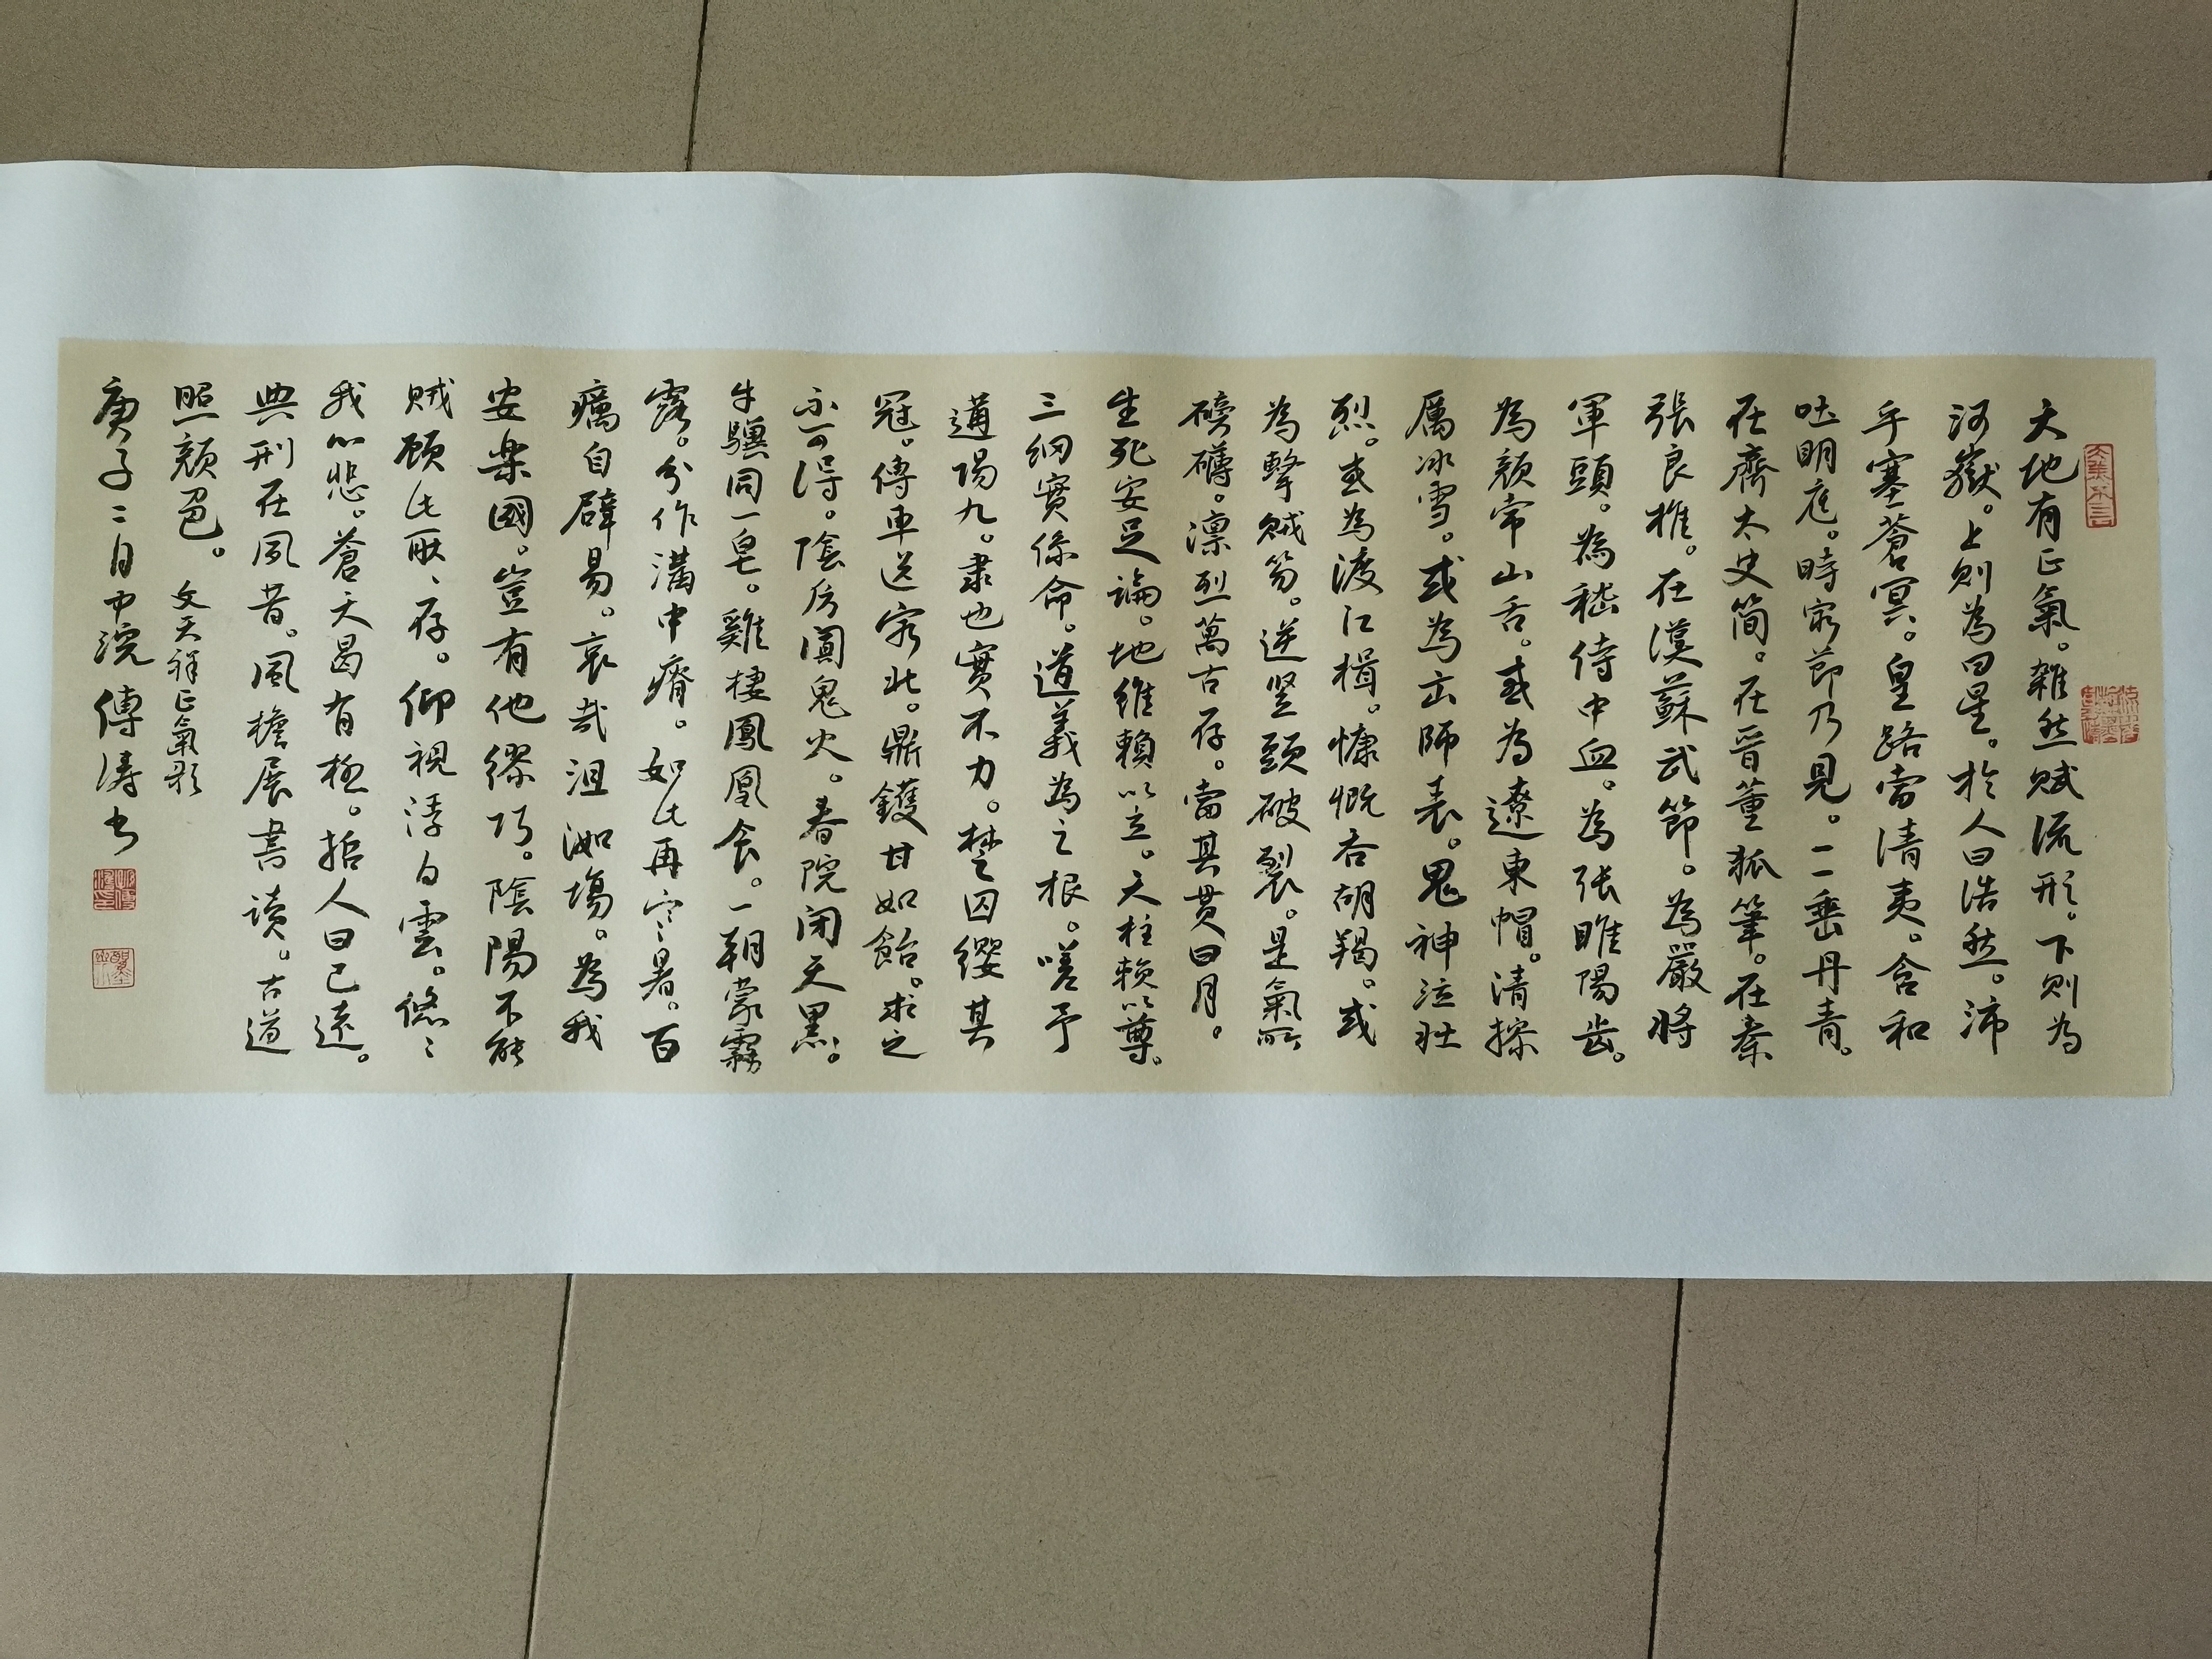 天地有正氣。雜然賦流形。下則為
河嶽。上則為日星。於人曰浩然。沛
乎塞蒼冥。皇路當清夷。含和
吐明庭。時窮節乃見。一一垂丹青。
在齊太史簡。在晉董狐筆。在秦
張良椎。在漢蘇武節。為嚴將
軍頭。為嵇侍中血。為張睢陽齒。
為顏常山舌。或為遼東帽。清操
厲冰雪。或為出師表。鬼神泣壯
烈。或為渡江楫。慷慨吞胡羯。或
為擊賊笏。逆豎頭破裂。是氣所
磅礴。凜烈萬古存。當其貫日月。
生死安足論。地維賴以立。天柱賴以尊。
三綱實係命。道義為之根。嗟予
遘陽九。隸也實不力。楚囚纓其
冠。傳車送窮北。鼎鑊甘如飴。求之
不可得。陰房闃鬼火。春院閉天黑。
牛驥同一皂。雞棲鳳凰食。一朝蒙霧
露。分作溝中瘠。如此再寒暑。百
癘自辟易。哀哉沮洳場。為我
安樂國。豈有他繆巧。陰陽不能
賊。顧此耿耿存。仰視浮白雲。悠悠
我心悲。蒼天曷有極。哲人日已遠。
典刑在夙昔。風檐展書讀。古道
照顏色。 文天祥正氣歌
庚子二月中浣傅濤書